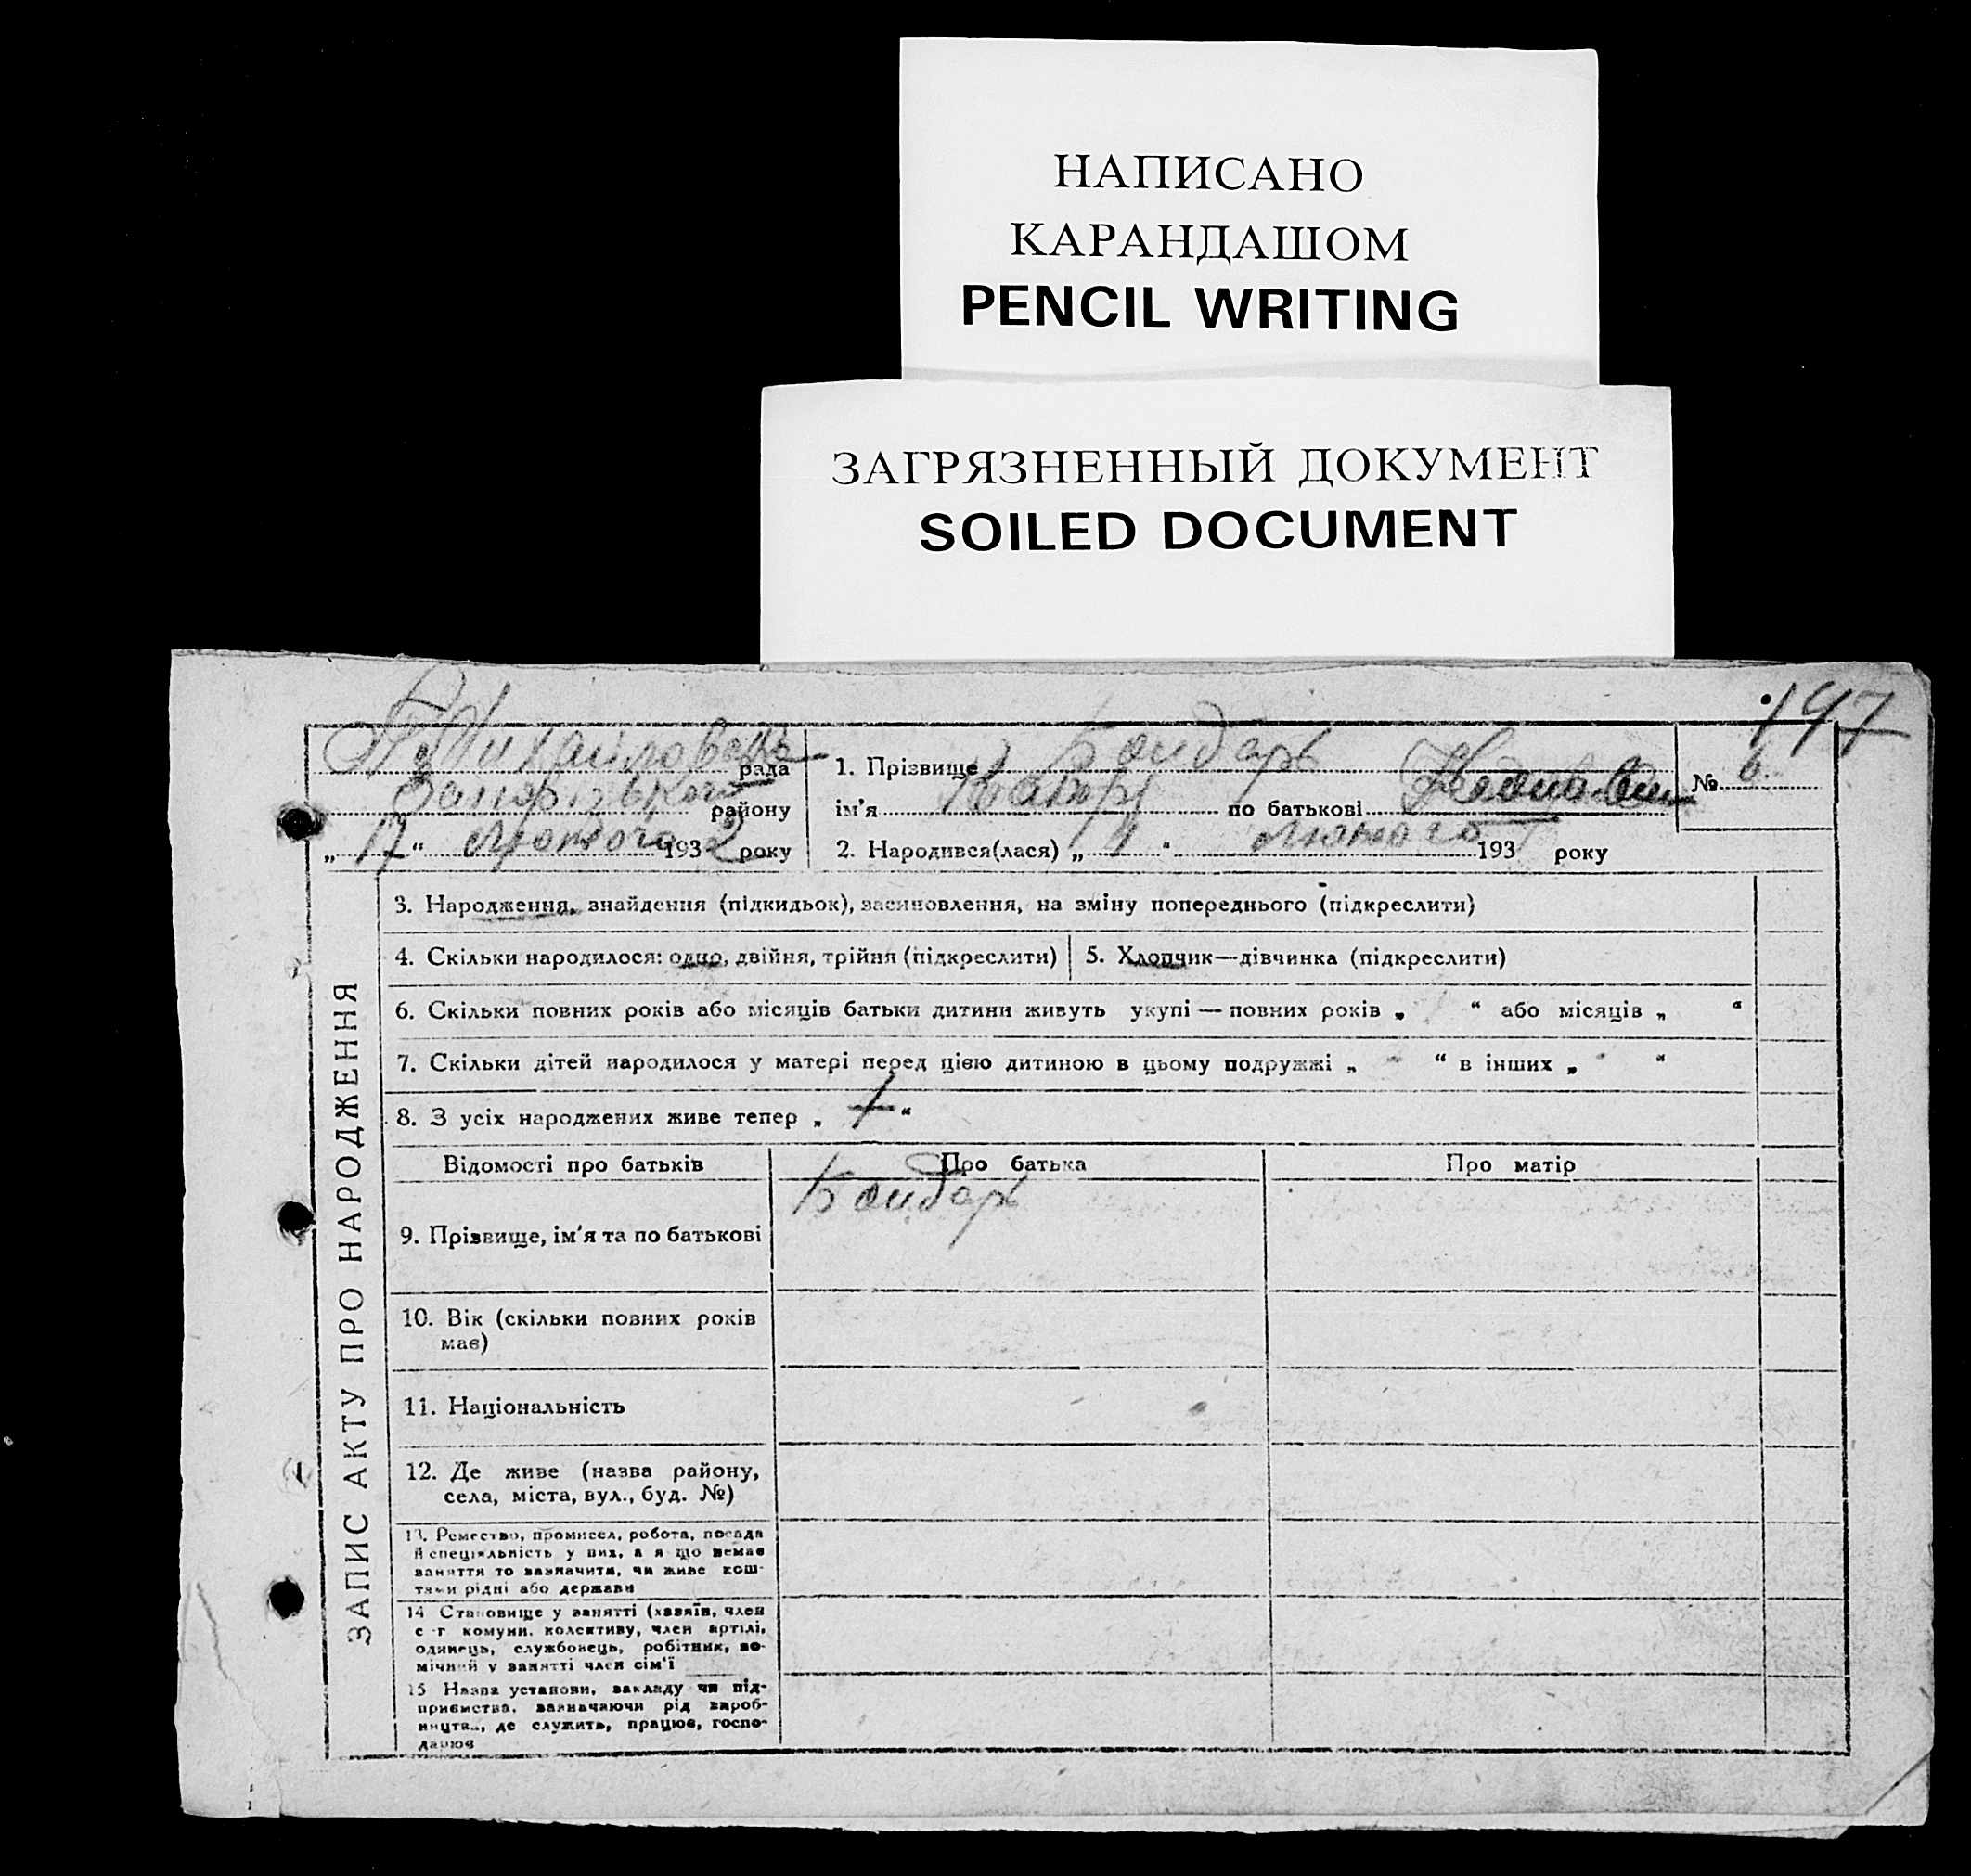 НАПИСАНО
КАРАНДАШОМ
PENCIL WRITING
ЗАГРЯЗНЕННЫЙ ДОКУМЕНТ
SOILED DOCUMENT
197
рада
Запорізького району
„ 17 “ Лютого 1932 року
1. Прізвище Бондарь
ім'я по батькові
№ 6
2. Народився(лася) „ “ Лютого 193 року
ЗАПИС АКТУ ПРО НАРОДЖЕННЯ
3. Народження, знайдення (підкидьок), засиновлення, на зміну попереднього (підкреслити)
4. Скільки народилося: одно, двійня, трійня (підкреслити)
5. Хлопчик—дівчинка (підкреслити)
6. Скільки повних років або місяців батьки дитини живуть укупі — повних років „ “ або місяців „ “
7. Скільки дітей народилося у матері перед цією дитиною в цьому подружжі „ - “ в інших „ - “
8. З усіх народжених живе тепер „ “
Відомості про батьків
Про батька
Про матір
9. Прізвище, ім'я та по батькові
Бондарь
10. Вік (скільки повних років
має)
11. Національність
12. Де живе (назва району,
села, міста, вул., буд. №)
13. Ремество, промисел, робота, посада
й спеціяльність у них, а я що немає
заняття то зазначити, чи живе кош-
тами рідні або держави
14 Становище у занятті (хазяїн, член
с-г комуни, колективу, член артілі,
одинець, службовець, робітник, по-
мічний у занятті член сім'ї
15 Назва установи, закладу чи під-
приємства, зазначаючи рід вироб-
ництва, де служить, працює, госпо-
дарює